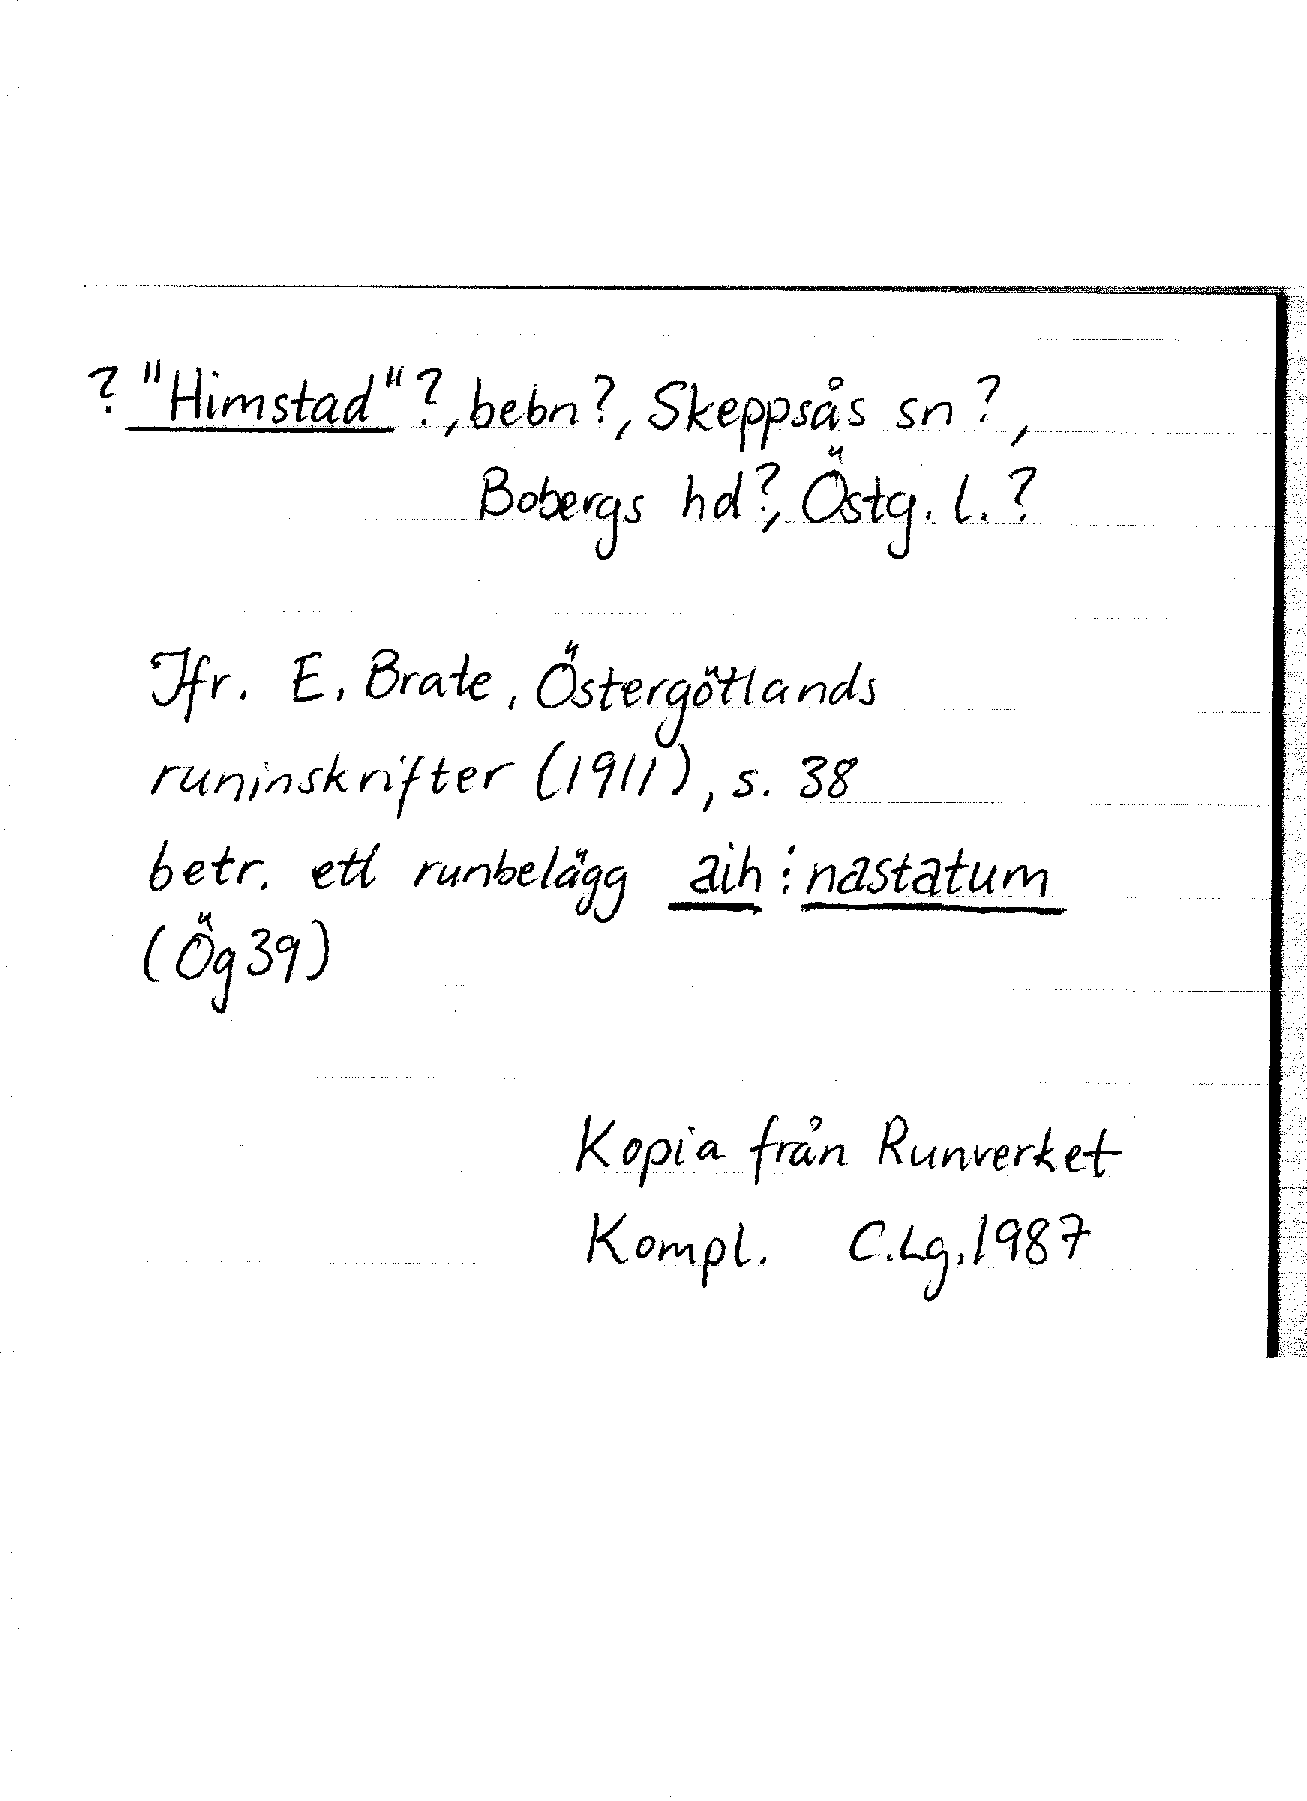 ? "Himstad"?, bebn?, Skeppsås sn?,
Bobergs hd?, Östg. l.?
Jfr. E. Brate, Östergötlands
runinskrifter (1911), s. 38
betr. ett runbelägg aih : nastatum
(Ög 39)
Kopia från Runverket
Kompl. C.Lg. 1987